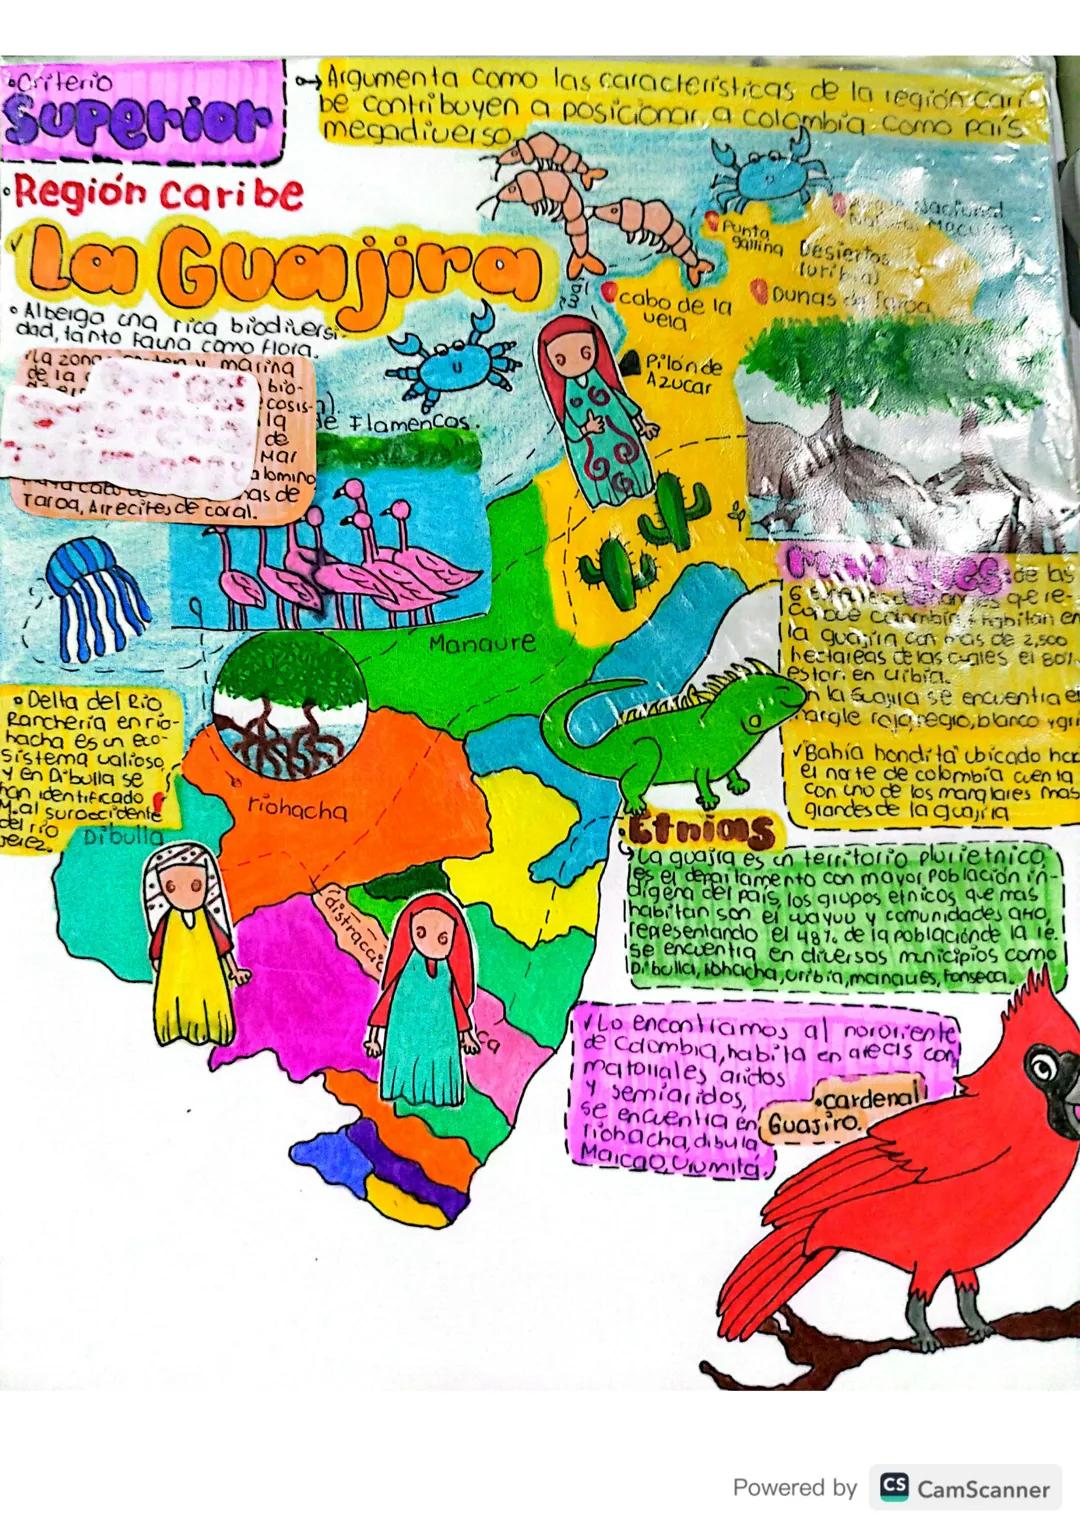 •Criterio
Superior
Argumenta como las caracteristicas de la región cari
be contribuyen a posicionar a colombia como país
megadiverso.
•Región caribe
✓La Guajira
•Alberga una rica biodiversi-
dad, tanto fauna como flora.
la zona marina
de la bio-
cosis-
la
de
Mar
alomino
cabo nas de
Taroa, Arrecifes de coral.
de Flamencos.
Punta
gallina
Nacional
Desiertos
(uribia)
Dunas de Taroa
cabo de la
vela
Pilón de
Azucar
Manaure
•Delta del Rio
Ranchería en rio-
hacha es un eco-
sistema valioso,
y en Dibulla se
han identificado
M. al suroccidente
del rio
Jerez.
Dibulla
riohacha
distracció
ca
de las
6 que re-
colombia habitan en
la guajira con mas de 2,500
hectareas de las cuales el 80%
estan en uribia.
En la Guajira se encuentra el
mangle rojo, negro, blanco y gri
✓Bahía hondita ubicado hac
el norte de colombia cuenta
con uno de los manglares mas
grandes de la guajira
•Etnias
La guajira es un territorio plurietnico,
es el departamento con mayor población in-
digena del país, los grupos etnicos que mas
habitan son el wayuu y comunidades afro,
representando el 48% de la población de la
se encuentra en diversos municipios como
Dibulla, Riohacha, uribia, manaures, Fonseca.
✓Lo encontramos al nororiente
de Colombia, habita en areas con
matorrales aridos
y semiaridos,
se encuentra en
riohacha, dibulla,
Maicao, Urumita.
•cardenal
Guajiro.
Powered by CS CamScanner